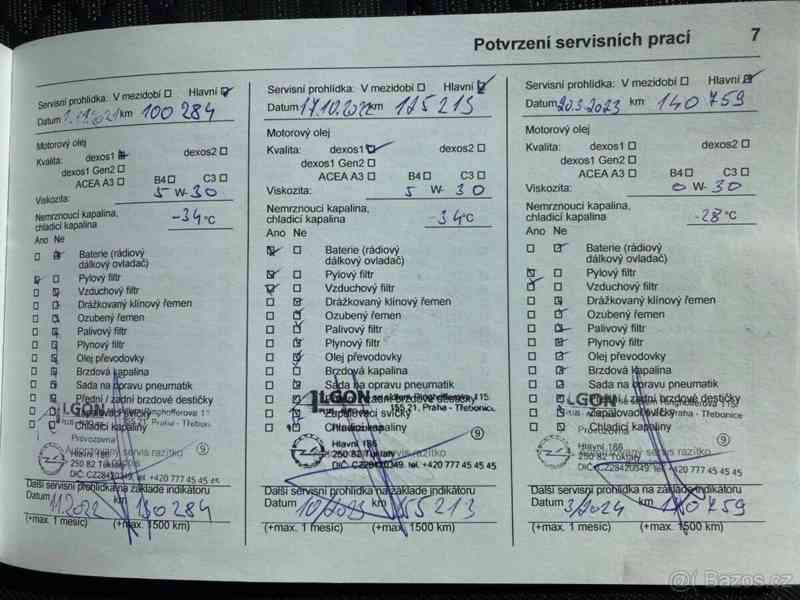 Potvrzení servisních prací
7
Servisní prohlídka: V mezidobí Hlavní
Datum 1.11.2021 km 100 284
Motorový olej
Kvalita: dexos1 dexos2
dexos1 Gen2
ACEA A3 B4 C3
Viskozita: 5 W-30
Nemrznoucí kapalina,
chladicí kapalina -34 °C
Ano Ne
Baterie (rádiový
dálkový ovladač)
Pylový filtr
Vzduchový filtr
Drážkovaný klínový řemen
Ozubený řemen
Palivový filtr
Plynový filtr
Olej převodovky
Brzdová kapalina
Sada na opravu pneumatik
Přední / zadní brzdové destičky
Zapalovací svíčky
Chladicí kapaliny
LGON
Ringhofferova 11
21, Praha - Třebonice
Provozovna
Autorizovaný servis razítko
9
250 82 Tuklaty
DIČ: CZ28420349, tel. +420 777 45 45 45
Další servisní prohlídka na základě indikátoru
Datum 11.2022 km 130 284
(+max. 1 měsíc) (+max. 1500 km)
Servisní prohlídka: V mezidobí Hlavní
Datum 17.10.2022 km 125 213
Motorový olej
Kvalita: dexos1 dexos2
dexos1 Gen2
ACEA A3 B4 C3
Viskozita: 5 W-30
Nemrznoucí kapalina,
chladicí kapalina -34 °C
Ano Ne
Baterie (rádiový
dálkový ovladač)
Pylový filtr
Vzduchový filtr
Drážkovaný klínový řemen
Ozubený řemen
Palivový filtr
Plynový filtr
Olej převodovky
Brzdová kapalina
Sada na opravu pneumatik
Zapalovací svíčky
LGON
Ringhofferova 115
155 21, Praha - Třebonice
9
Hlavní 186
250 82 Tuklaty
DIČ: CZ28420349, tel. +420 777 45 45 45
Další servisní prohlídka na základě indikátoru
Datum 10/2023 km 155 213
(+max. 1 měsíc) (+max. 1500 km)
Servisní prohlídka: V mezidobí Hlavní
Datum 20.3.2023 km 140 759
Motorový olej
Kvalita: dexos1 dexos2
dexos1 Gen2
ACEA A3 B4 C3
Viskozita: 0 W-30
Nemrznoucí kapalina,
chladicí kapalina -28 °C
Ano Ne
Baterie (rádiový
dálkový ovladač)
Pylový filtr
Vzduchový filtr
Drážkovaný klínový řemen
Ozubený řemen
Palivový filtr
Plynový filtr
Olej převodovky
Brzdová kapalina
Sada na opravu pneumatik
Zapalovací svíčky
Chladicí kapaliny
LGON
Ringhofferova 115
Praha - Třebonice
Provozovna
9
Hlavní 186
250 82 Tuklaty
DIČ: CZ28420349, tel. +420 777 45 45 45
Další servisní prohlídka na základě indikátoru
Datum 3/2024 km 170 759
(+max. 1 měsíc) (+max. 1500 km)
Bazos.cz